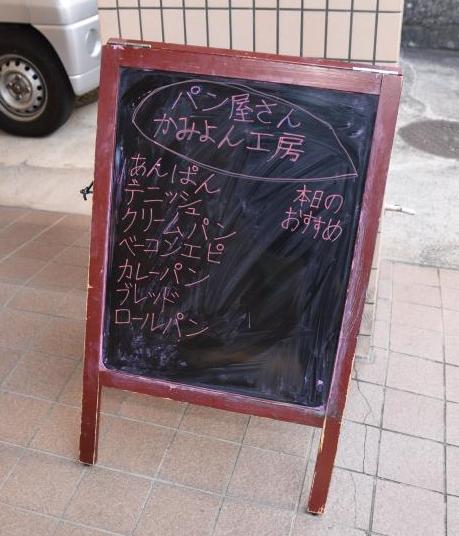 パン屋さん
かみよん工房
あんぱん
デニッシュ
クリームパン
ベーコンエピ
カレーパン
ブレッド
ロールパン
本日の
おすすめ